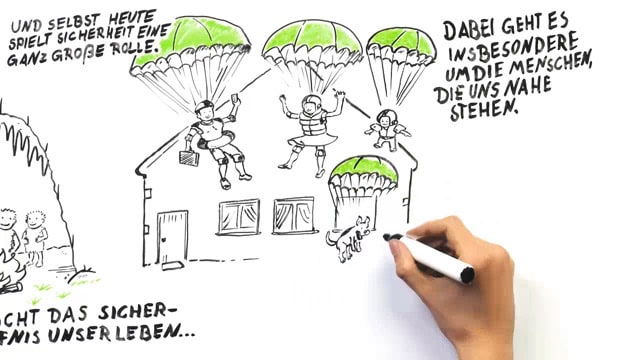 UND SELBST HEUTE
SPIELT SICHERHEIT EINE
GANZ GROßE ROLLE.
DABEI GEHT ES
INSBESONDERE
UM DIE MENSCHEN,
DIE UNS NAHE
STEHEN.
CHT DAS SICHER-
FNIS UNSER LEBEN...